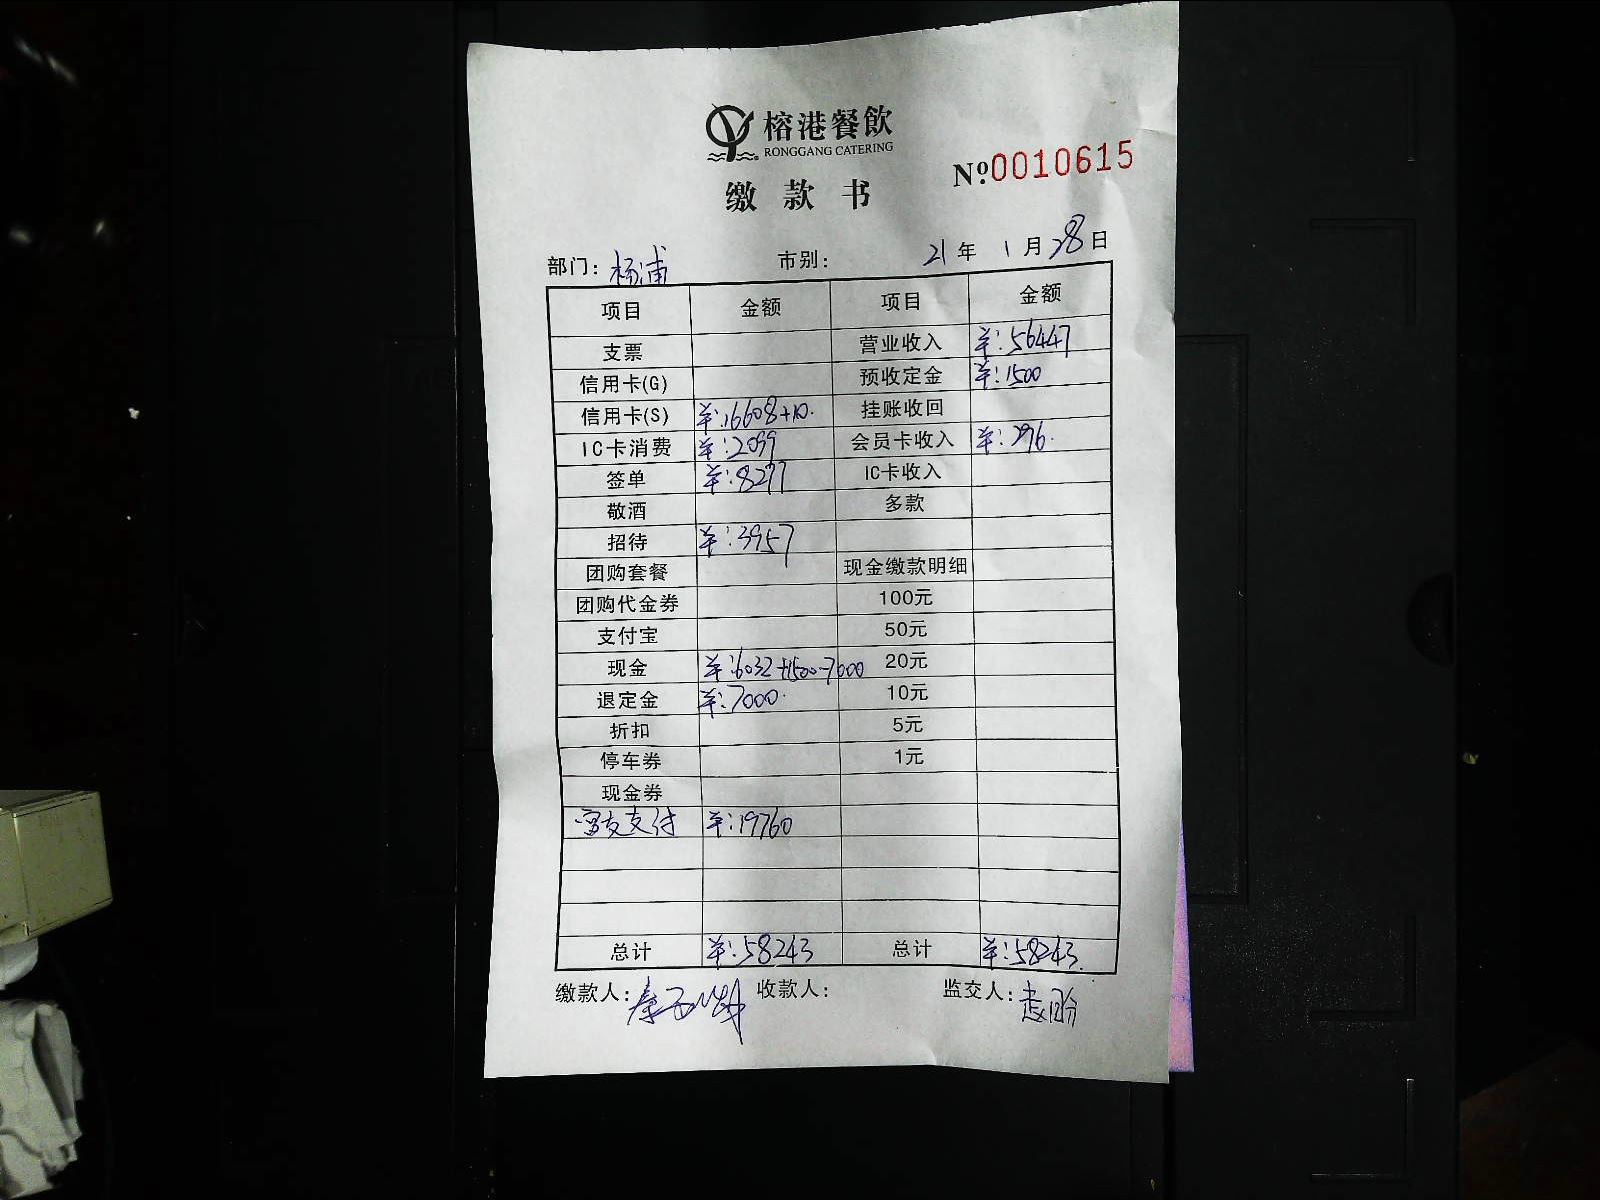 榕港餐飲
RONGGANG CATERING
缴款书
Nº.0010615
部门：杨浦 市别： 21年1月28日
项目 金额 项目 金额
支票 营业收入 ¥:56447
信用卡(G) 预收定金 ¥:1500
信用卡(S) ¥:16608+10. 挂账收回
IC卡消费 ¥:2099 会员卡收入 ¥:296.
签单 ¥:8277 IC卡收入
敬酒 多款
招待 ¥:3957
团购套餐 现金缴款明细
团购代金券 100元
支付宝 50元
现金 ¥:6032+1500-7000 20元
退定金 ¥:7000. 10元
折扣 5元
停车券 1元
现金券
支付 ¥:19760
总计 ¥:58243 总计 ¥:58243.
缴款人： 收款人： 监交人：